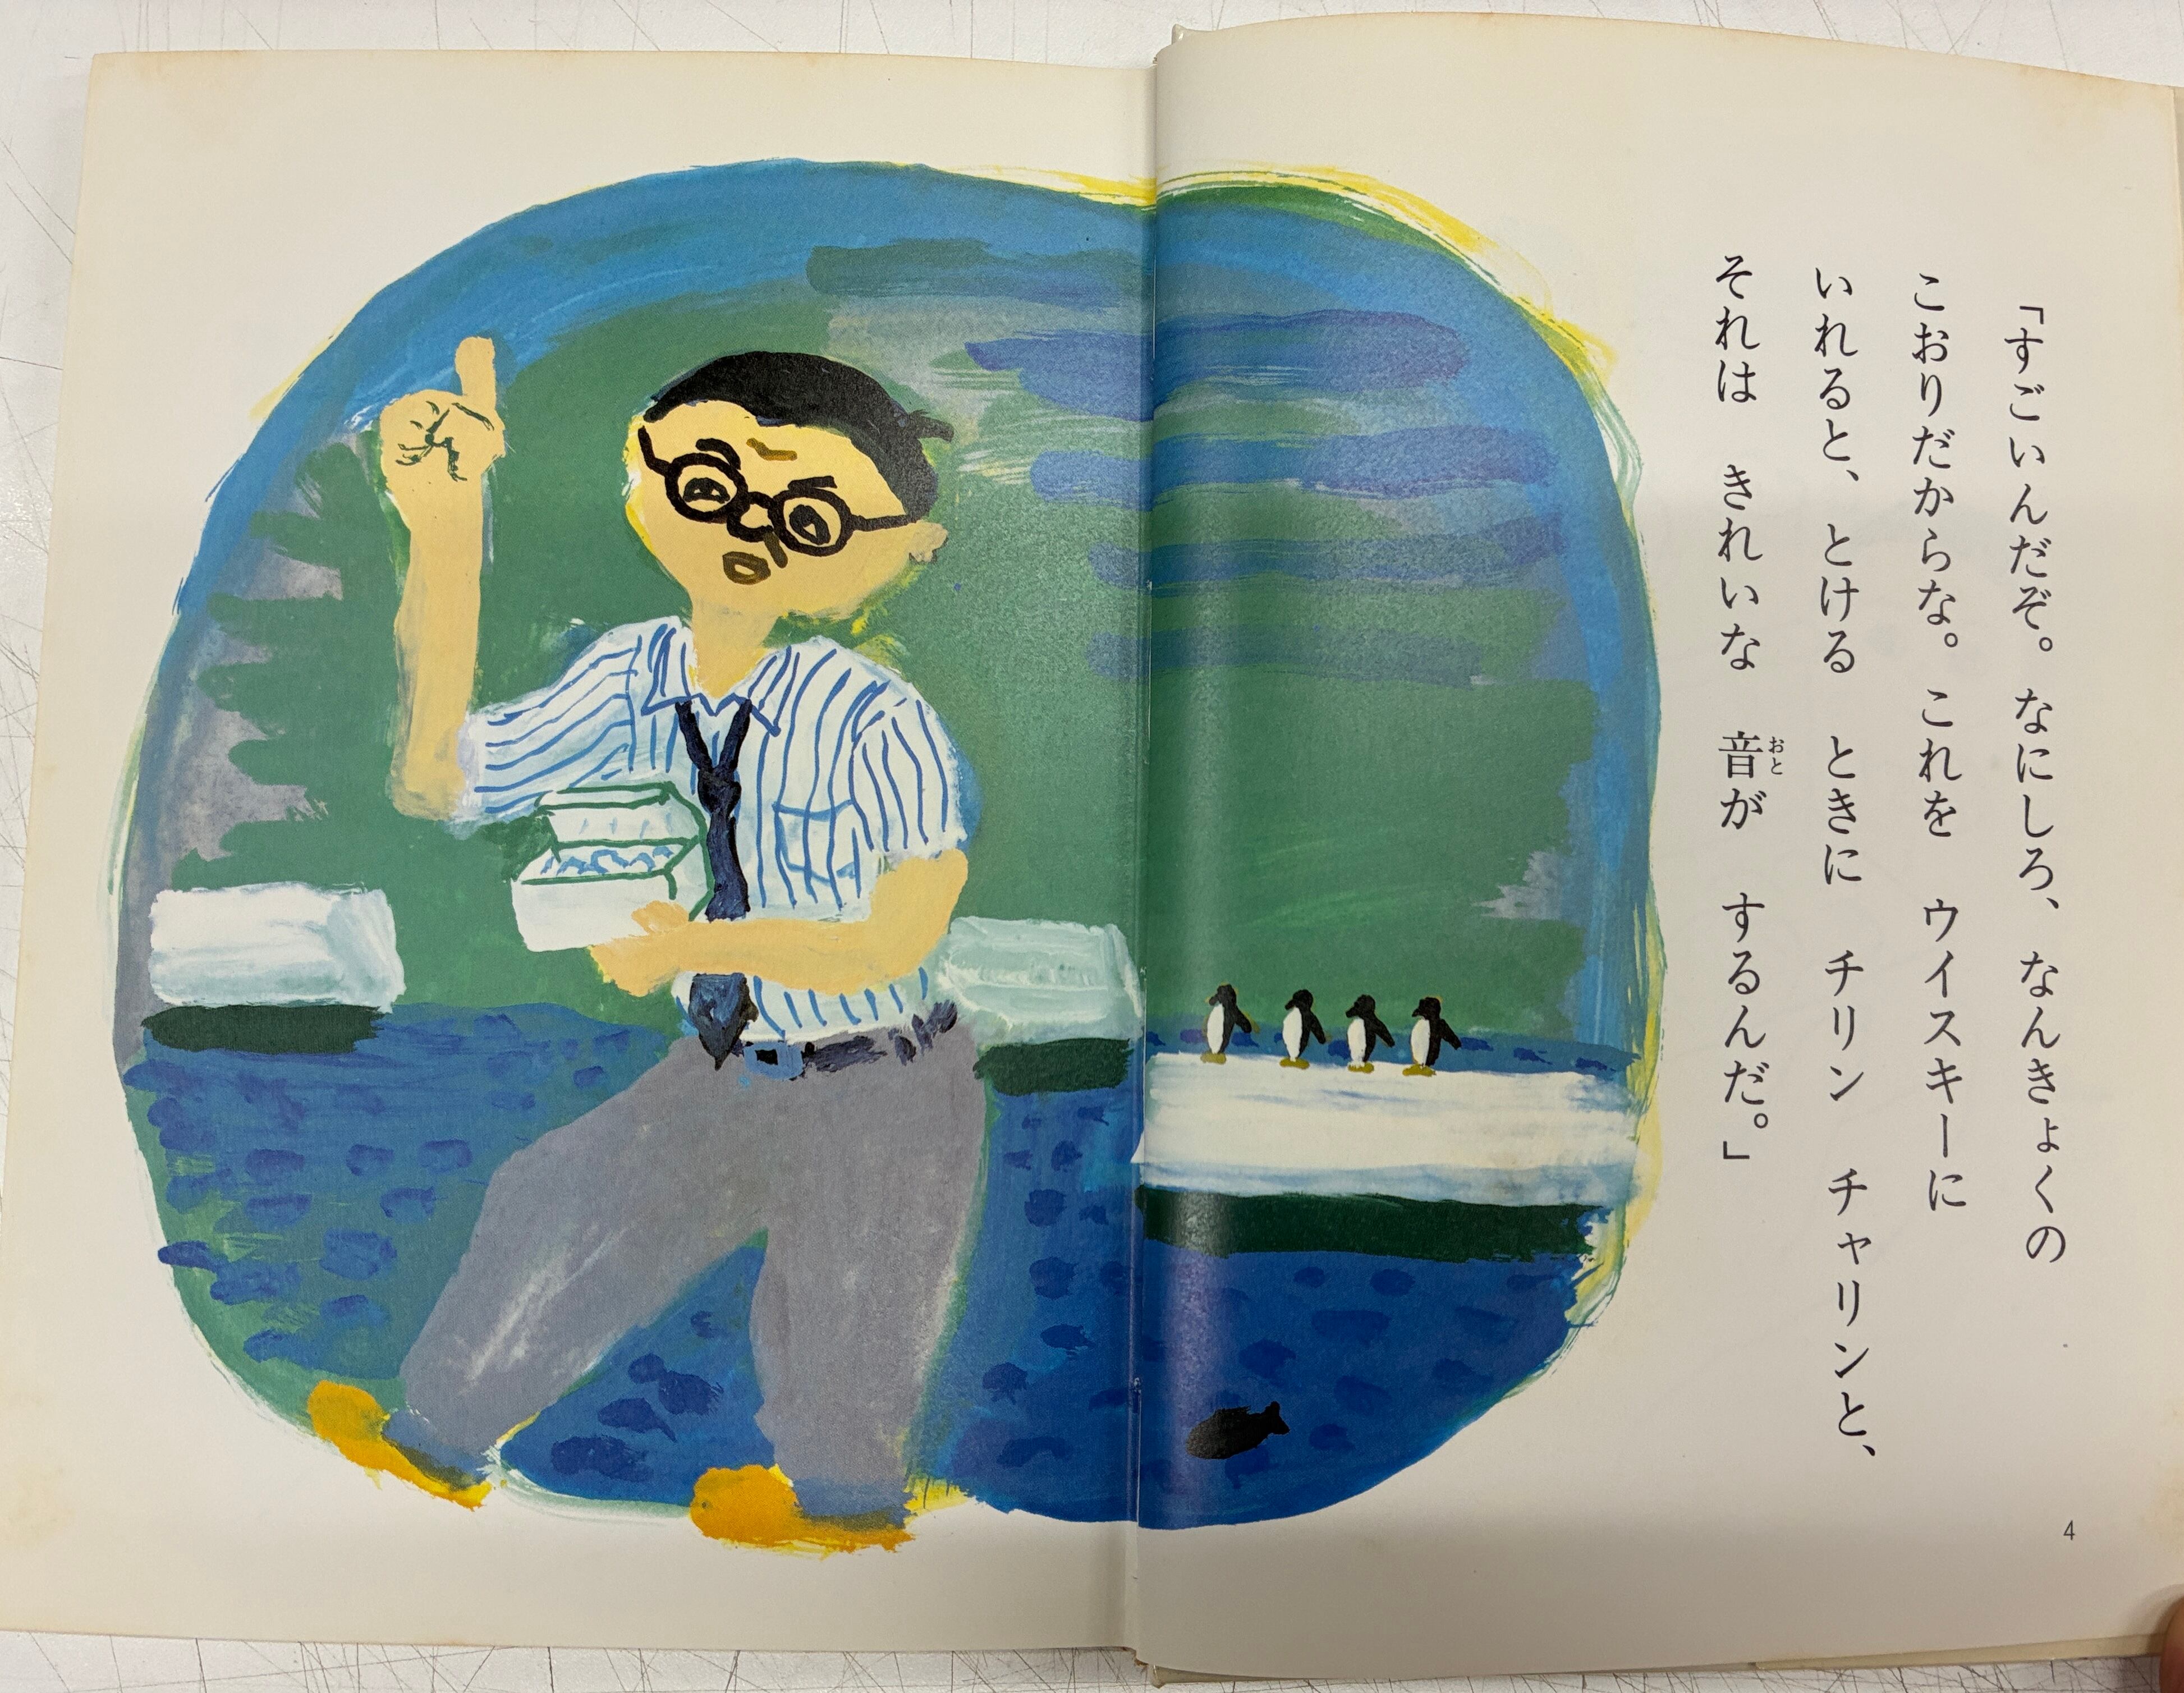 「すごいんだぞ。なにしろ、なんきょくの
こおりだからな。これを ウイスキーに
いれると、とける ときに チリン チャリンと、
それは きれいな 音が するんだ。」
おと
4